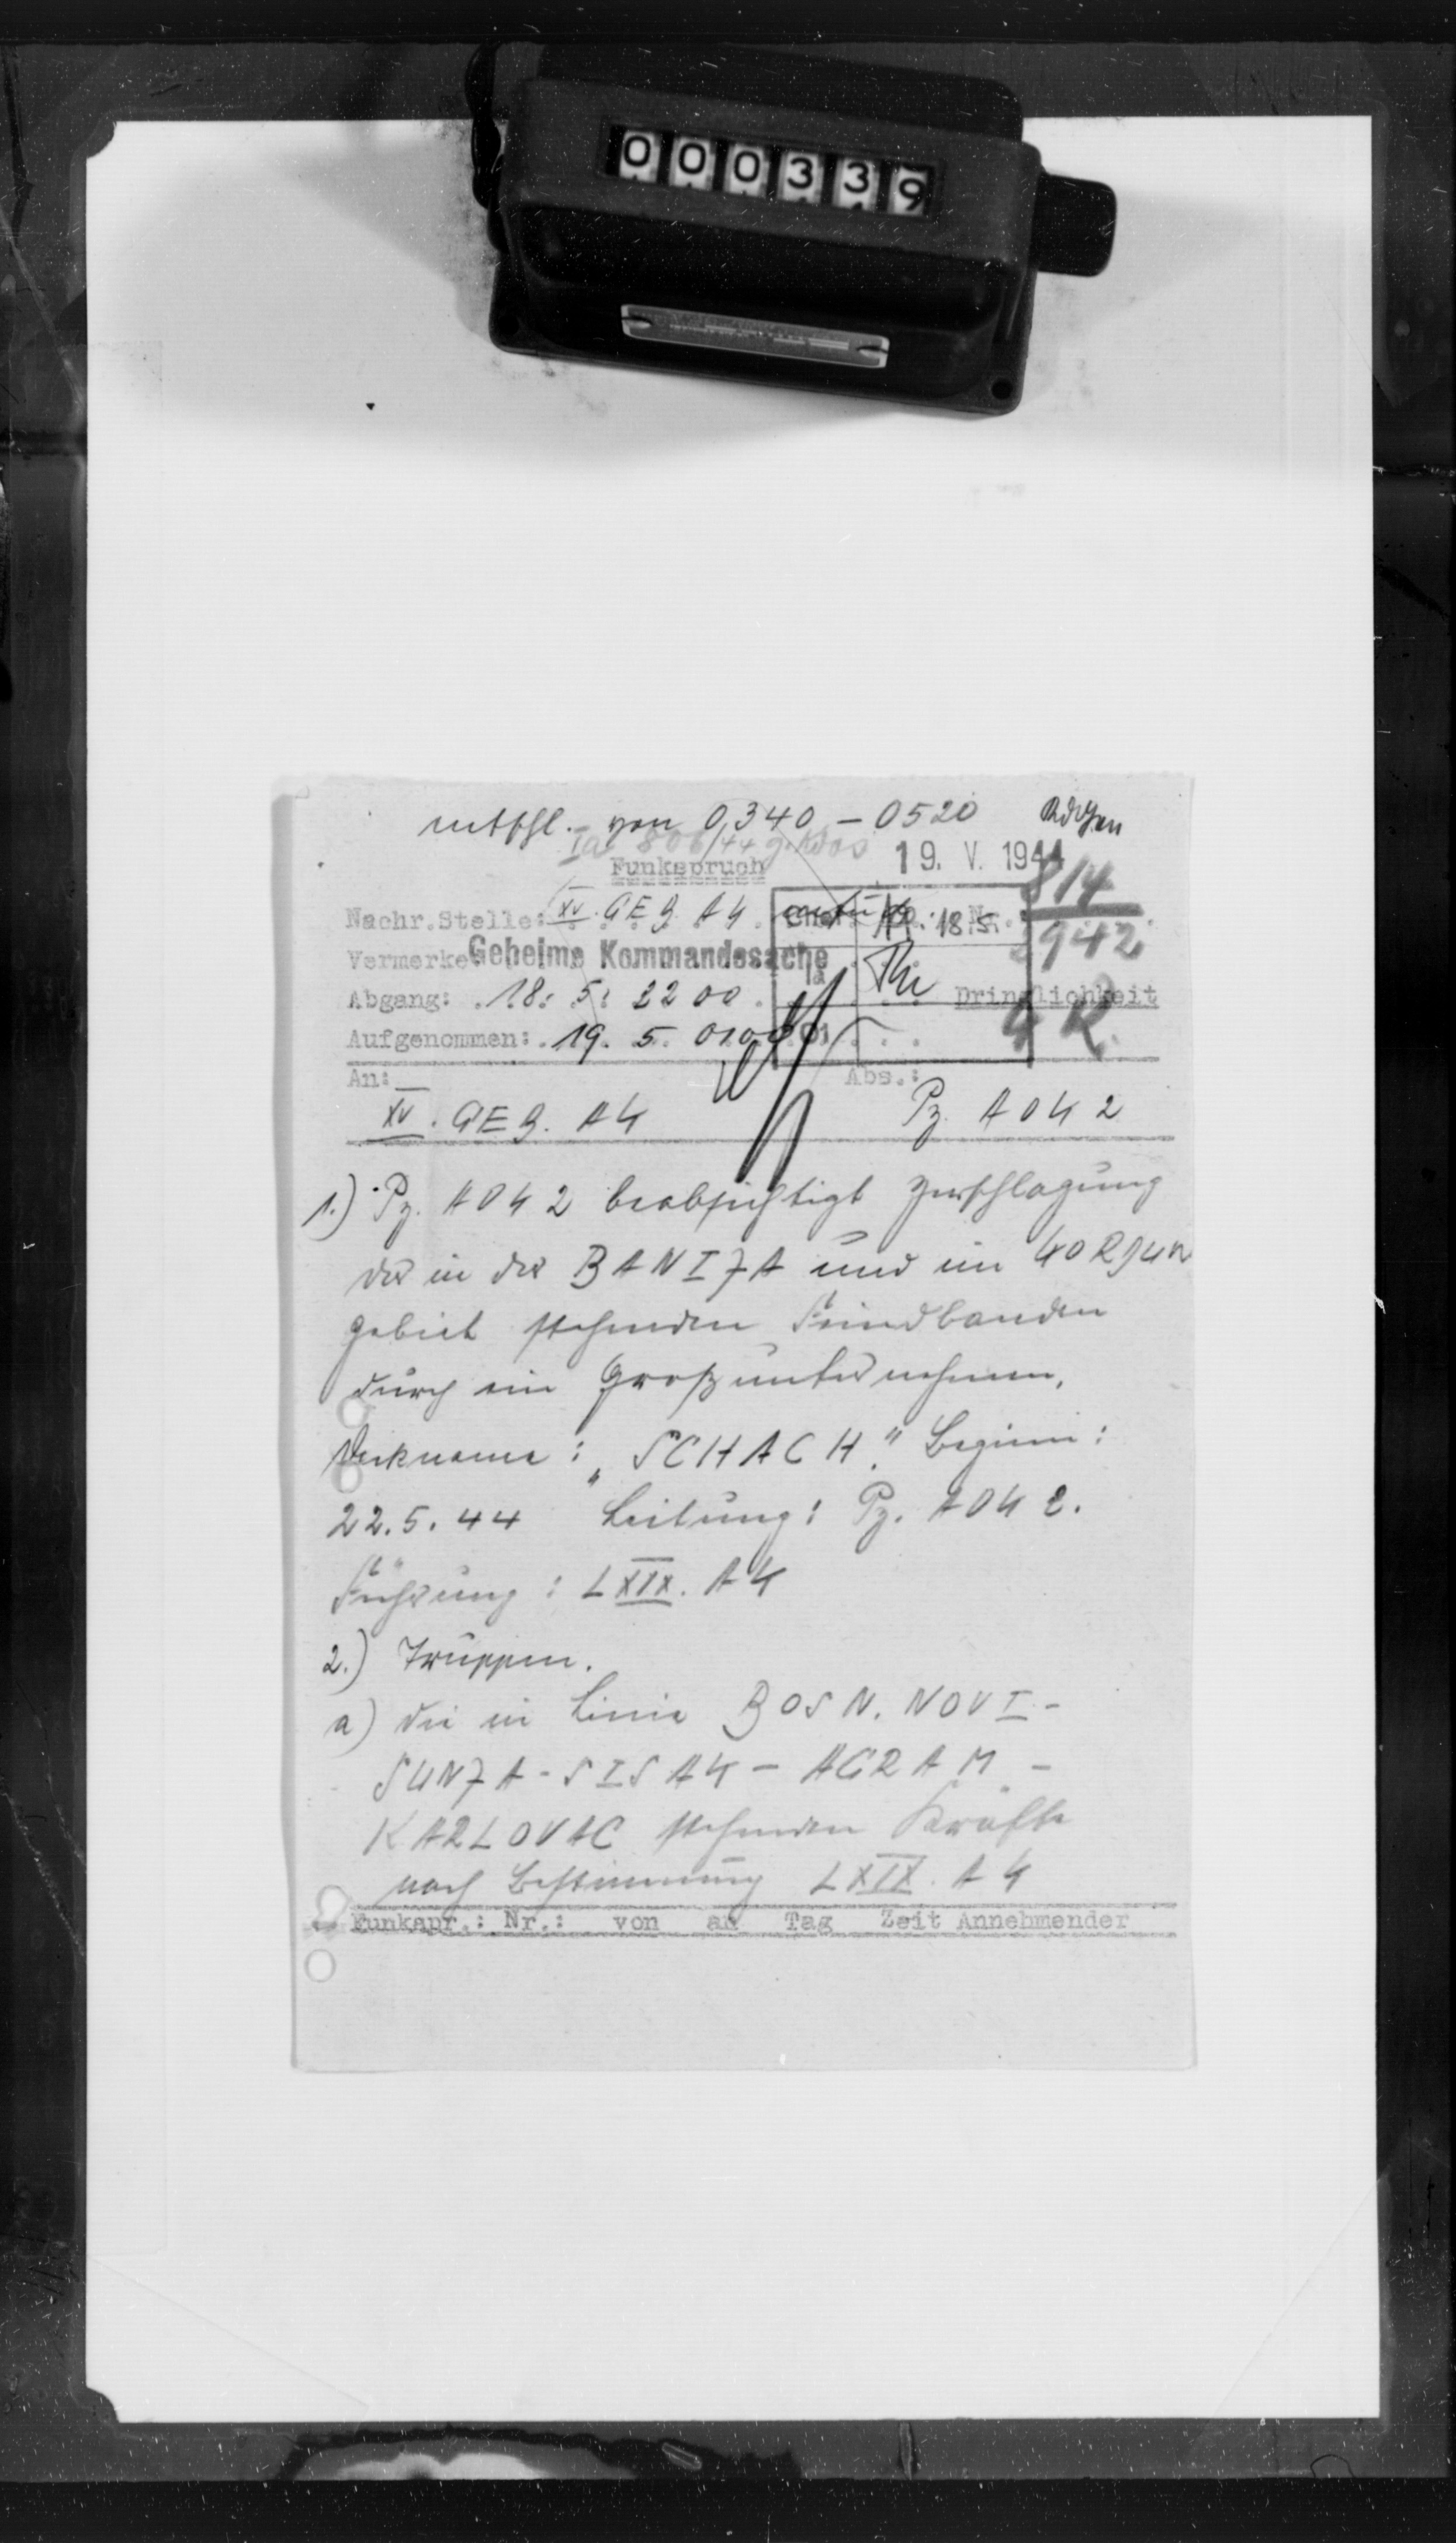 000339
entschl. von 0340 – 0520
Ia 806/44 g.Kdos
19. V. 1944
Funkspruch
814
Nachr.Stelle: XV. GEB. AK
Chef 18.5. Nr.:
942
Vermerke: Geheime Kommandosache
Ia
Abgang: 18. 5. 2200 Dringlichkeit
Aufgenommen: 19. 5. 0100 01
An: Abs.:
XV. GEB. AK Pz. AOK 2
1.) Pz. AOK 2 beabsichtigt Zerschlagung
der in der BANIJA und im KORDUN
gebiet stehenden Feindbanden
durch ein Großunternehmen,
Deckname: „SCHACH." Beginn:
22.5.44 Leitung: Pz. AOK 2.
Führung: LXIX. AK
2.) Truppen.
a) die in Linie BOSN. NOVI –
SUNJA – SISAK – AGRAM –
KARLOVAC stehenden Kräfte
nach Bestimmung LXIX. AK
Funkspr.: Nr.: von an Tag Zeit Annehmender